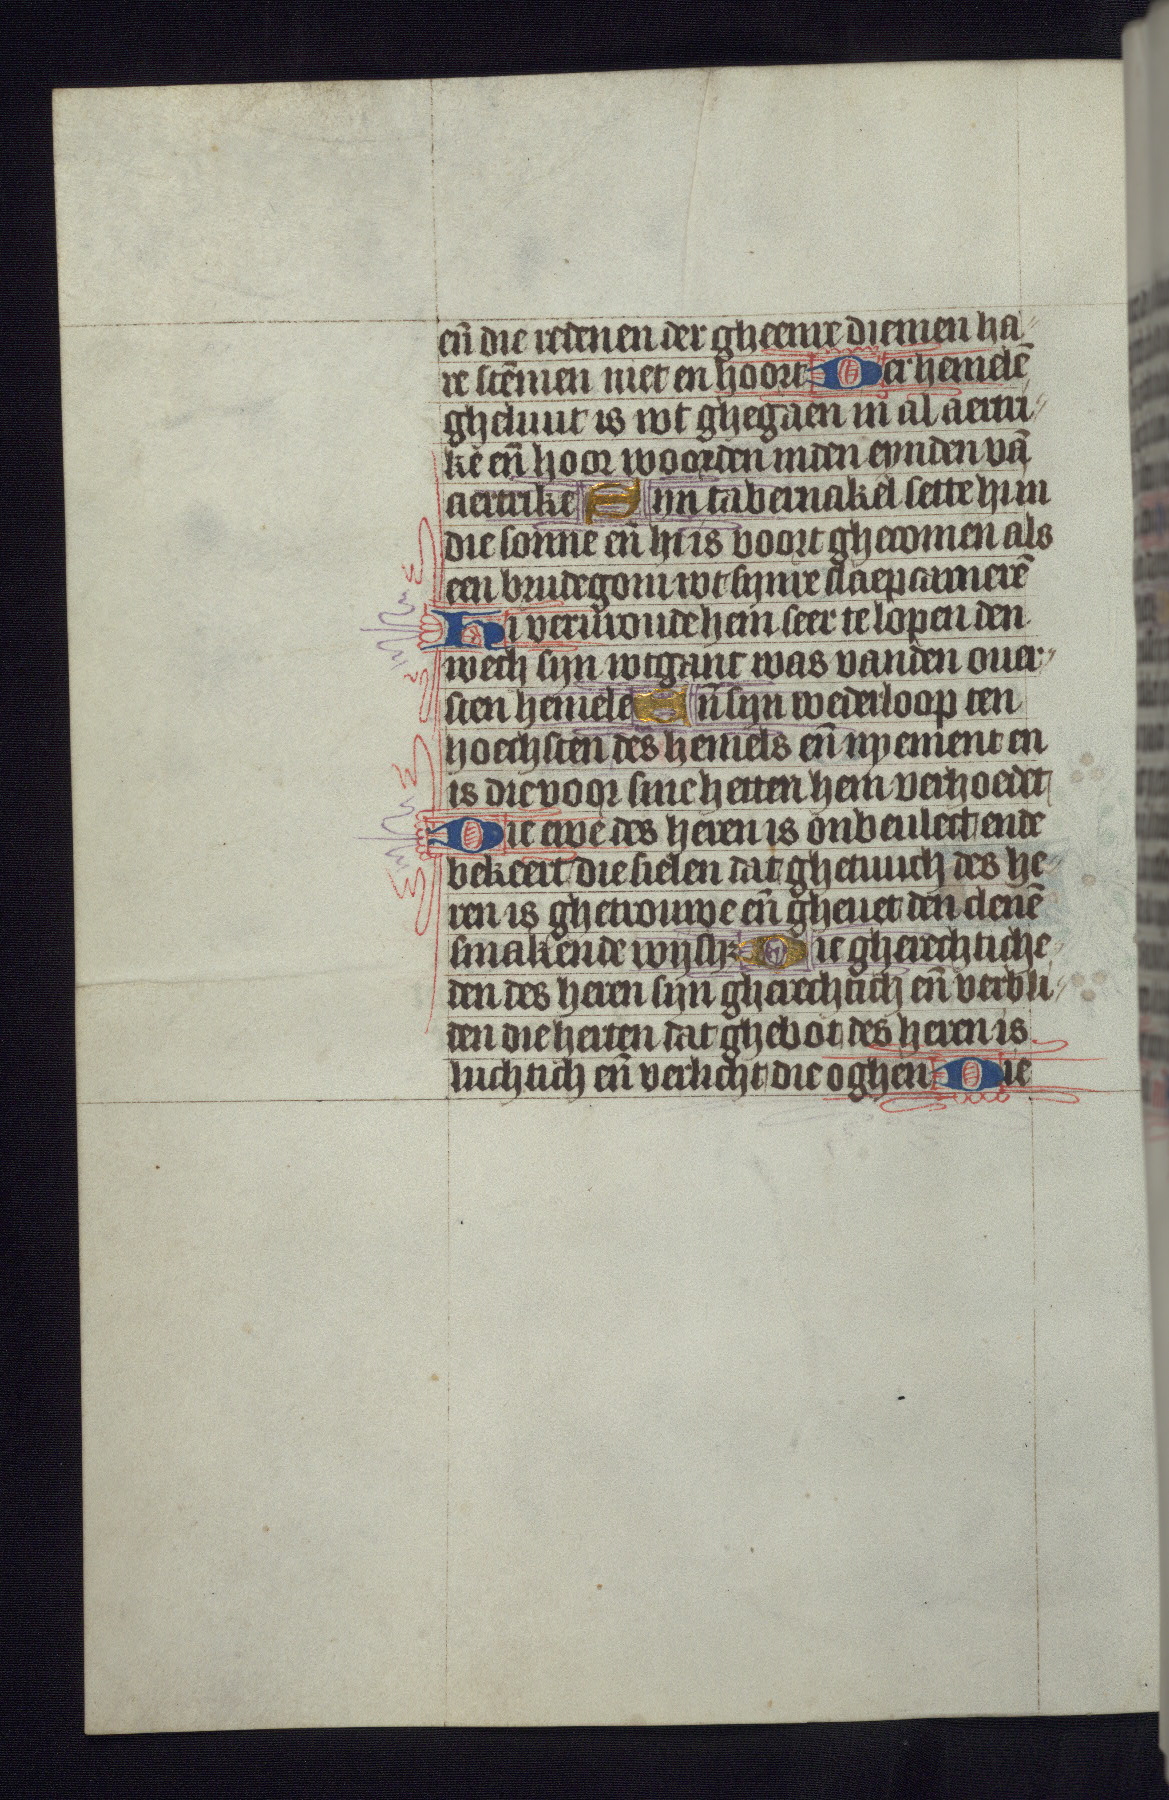 en̄ die redenen der gheenre diemen ha⸗
re stēmen niet en hoort Der hemelē
gheluut is wt ghegaen in al aertri⸗
ke en̄ hoor woorden inden eynden vā
aertrike Sijn tabernakel sette hi in
die sonne en̄ hi is voort ghecomen als
een brudegom wt synre slaepcamerē
Hi vervroude hem seer te lopen den
wech sijn wtganc was vanden ouer⸗
sten hemele En̄ sijn wederloop ten
hoechsten des hemels en̄ nyement en
is die voor sine hetten hem verhoedet
Die ewe des heren is onbeulect ende
bekeert die sielen dat ghetuuch des he
ren is ghetrouwe en̄ gheuet den clenē
smakende wijsh Die gherechtiche⸗
den des heren sijn gherechtich en̄ verbli⸗
den die herten dat ghebot des heren is
luchtich en̄ verlicht die oghen Die